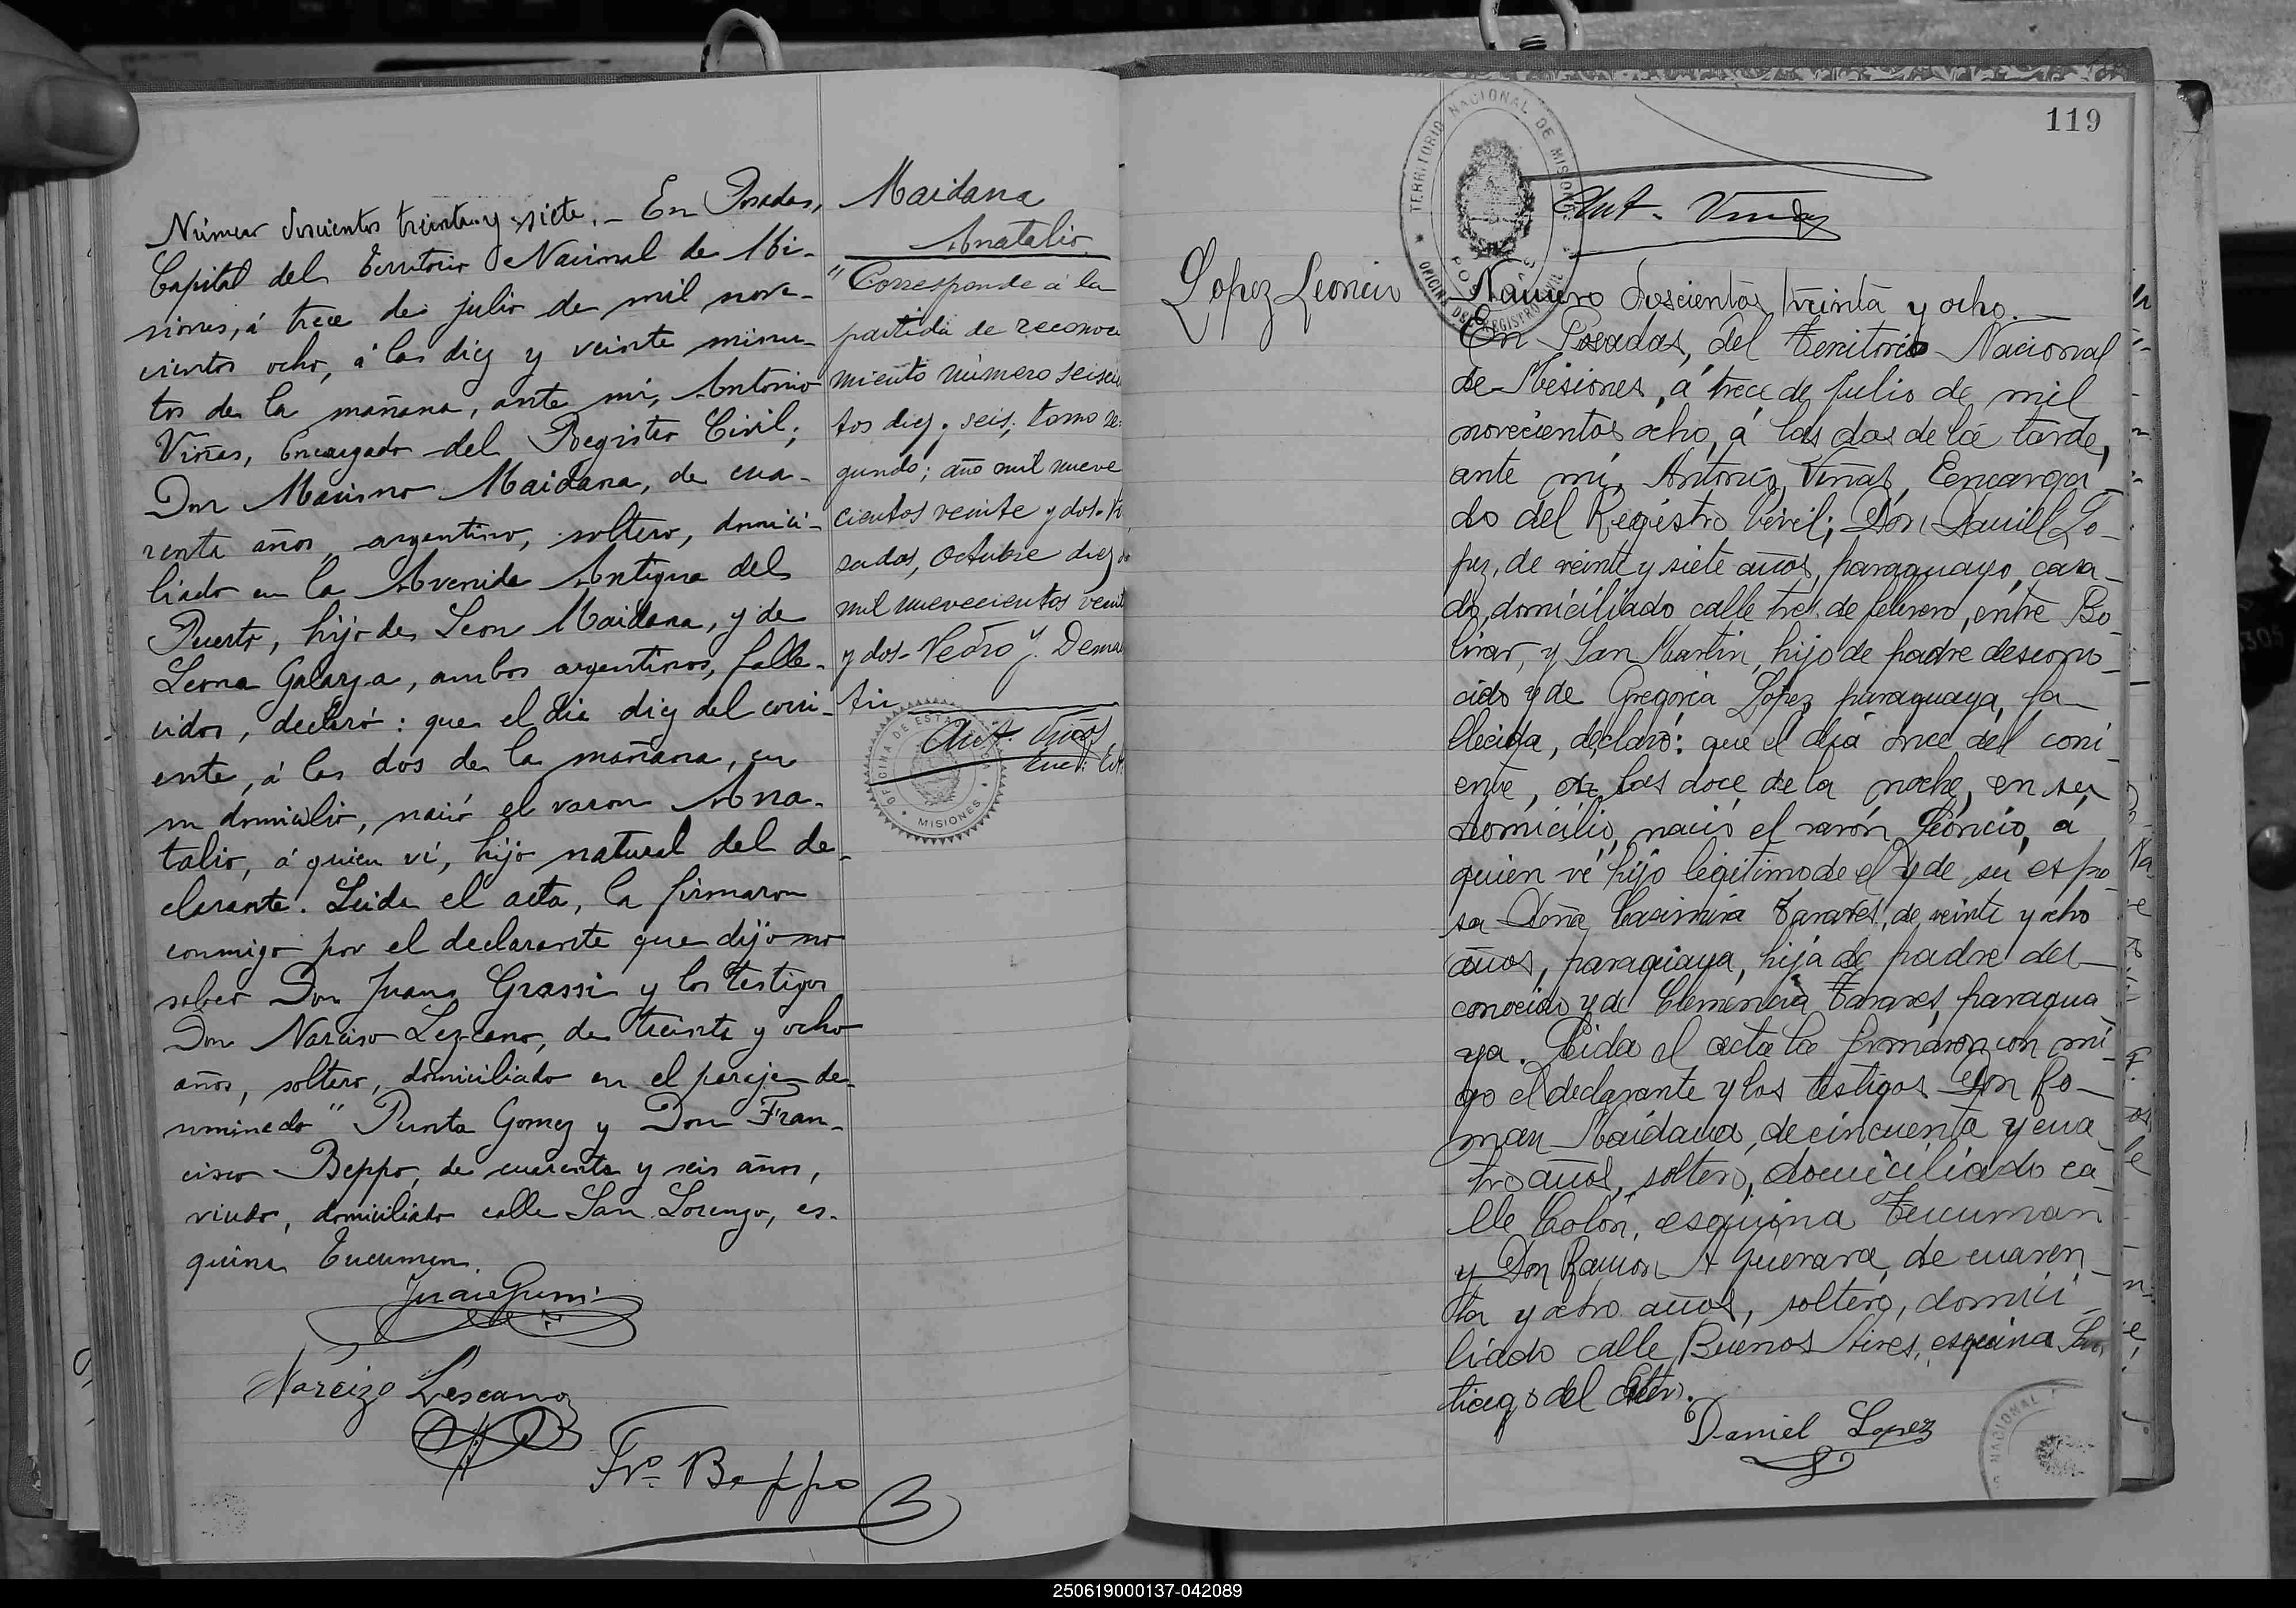 Número doscientos treinta y siete. - En Posadas,
Capital del Territorio Nacional de Mi-
siones, á trece de julio de mil nove-
cientos ocho, á las diez y veinte minu-
tos de la mañana, ante mí, Antonio
Viñas, Encargado del Registro Civil;
Don Maximo Maidana, de cua-
renta años, argentino, soltero, domici-
liado en la Avenida Antigua del
Puerto, hijo de Leon Maidana, y de
Leona Galarza, ambos argentinos, falle-
cidos, declaró: que el dia diez del corri-
ente, á las dos de la mañana, en
su domicilio, nació el varon Ana-
talio, á quien ví, hijo natural del de-
clarante. Leida el acta, la firmaron
conmigo por el declarante que dijo no
saber Don Juan Grassi y los testigos
Don Narciso Lezcano, de treinta y ocho
años, soltero, domiciliado en el paraje de-
nominado "Punta Gomez y Don Fran-
cisco Beppo, de cuarenta y seis años,
viudo, domiciliado calle San Lorenzo, es-
quina Tucuman.
Narcizo Lescano
Fro. Beppo
Maidana
Anatalio
"Corresponde á la
partida de reconoci
miento número seiscien
tos diez y seis; tomo se-
gundo; año mil nueve
cientos veinte y dos. Po
sadas, Octubre diez de
mil nuevecientos veinte
y dos - Pedro J. Dema
tri
Ant. Viñas
OFICINA DE ESTADISTICA
MISIONES
119
TERRITORIO NACIONAL DE MISIONES
POSADAS
OFICINA DEL REGISTRO CIVIL
Ant. Viñas
Lopez Leoncio
Número doscientos treinta y ocho.
En Posadas, del Territorio Nacional
de Misiones, á trece de Julio de mil
novecientos ocho, á las dos de la tarde,
ante mí, Antonio Viñas, Eencarga
do del Registro Civil; Don Daniel Lo-
pez, de veinte y siete años, paraguayo, casa-
do, domiciliado calle tres de febrero, entre Bo-
livar, y San Martin, hijo de padre descono-
cido y de Gregoria Lopez, paraguaya, fa-
llecida, declaró: que el dia once del corri
ente, a las doce de la noche, en su
domicilio, nació el varón Leoncio, á
quien ví hijo legitimo de el y de su espo-
sa Doña Casimira Tavares, de veinte y ocho
años, paraguaya, hija de padre des-
conocido y de Clemencia Tavares, paragua
ya. Leida el acta la firmaron con mi
go el declarante y los testigos Don Ro-
man Maidana, de cincuenta y cua
tro años, soltero, domiciliado ca
lle Colón, esquina Tucuman
y Don Ramon A Guevara, de cuaren
ta y ocho años, soltero, domici
liado calle Buenos Aires, esquina San
tiago del Estero.
Daniel Lopez
NACIONAL
250619000137-042089